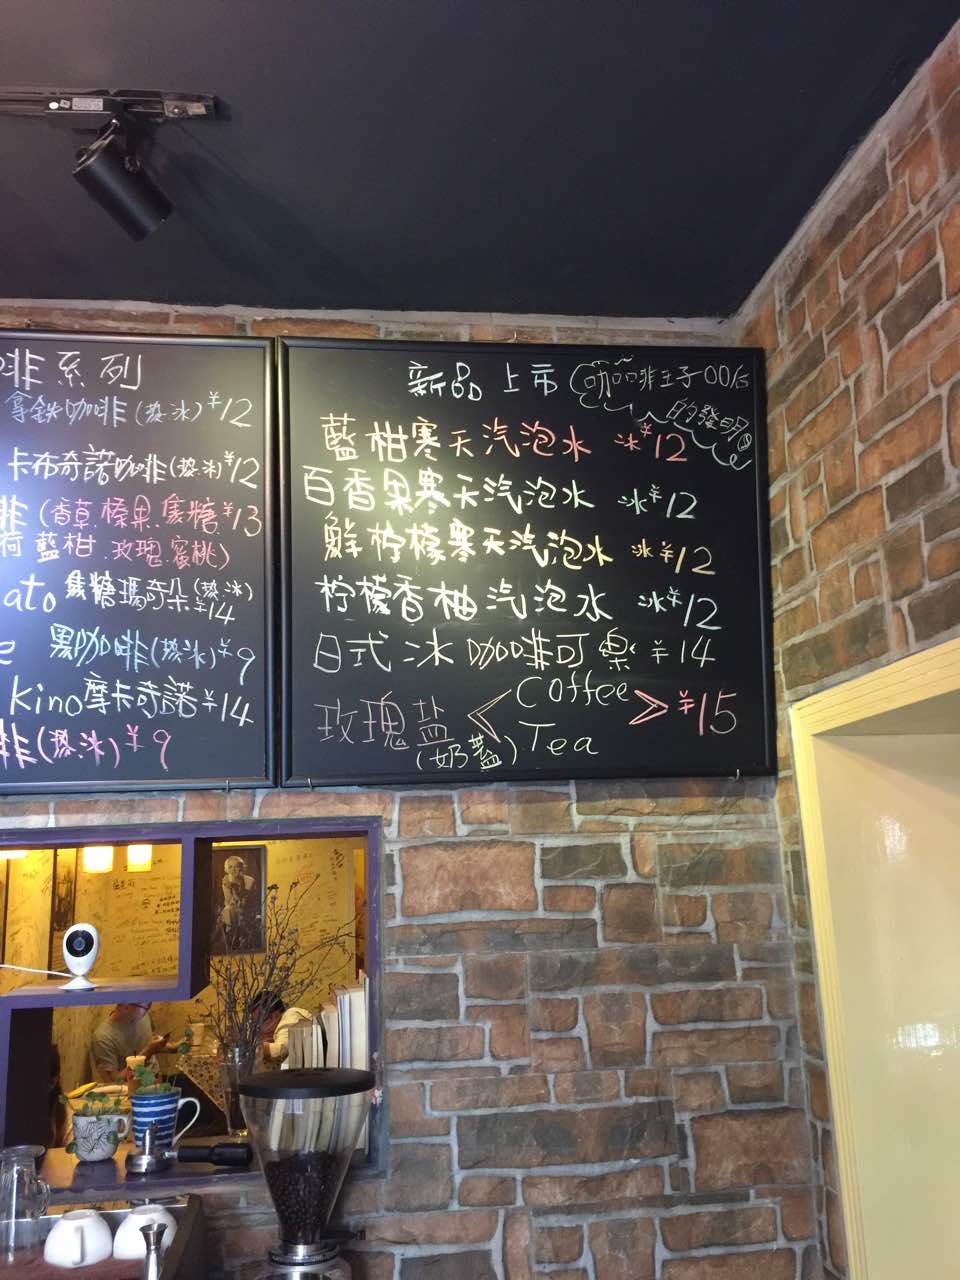 啡系列
拿鉄咖啡(热冰)¥12
卡布奇諾咖啡(热冰)¥12
啡(香草.榛果.焦糖.¥13
荷.藍柑.玫瑰.蜜桃)
ato 焦糖瑪奇朵(热冰)¥14
e 黑咖啡(热冰)¥9
kino摩卡奇諾¥14
啡(热冰)¥9
新品上市(咖啡王子
的發明
藍柑寒天汽泡水 冰¥12
百香果寒天汽泡水 冰¥12
鮮柠檬寒天汽泡水 冰¥12
柠檬香柚汽泡水 冰¥12
日式冰咖啡可樂 ¥14
玫瑰盐 < Coffee > ¥15
(奶蓋) Tea